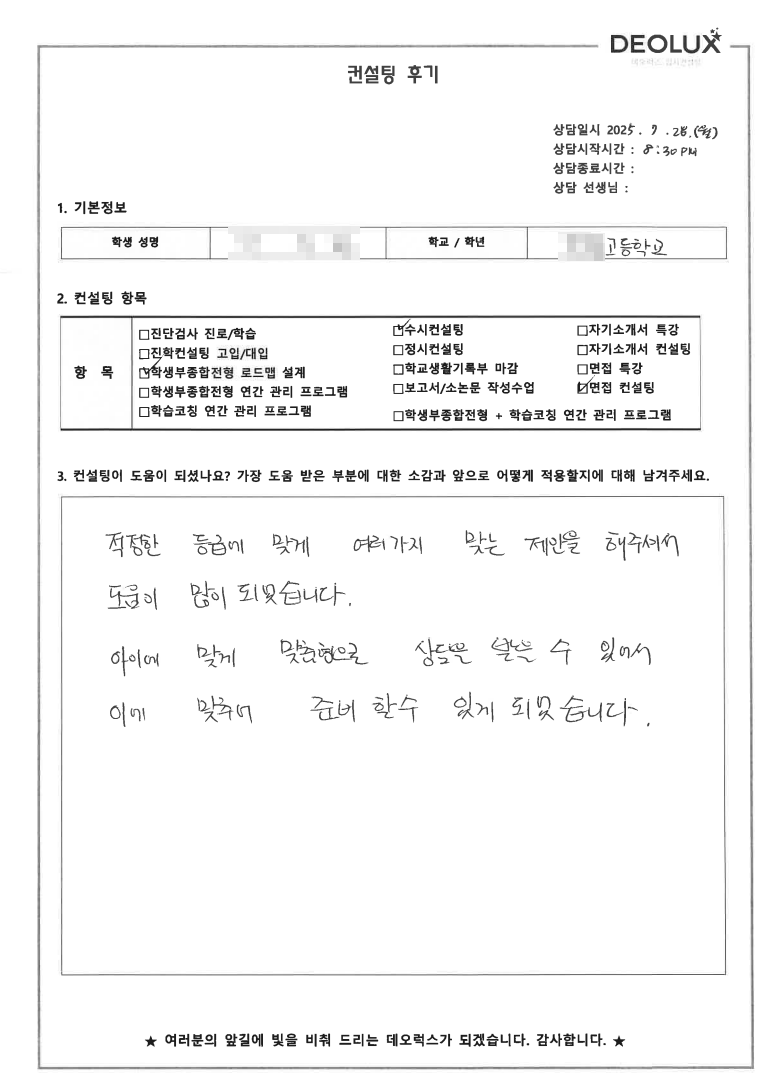 DEOLUX
데오럭스 입시컨설팅
컨설팅 후기
상담일시 2025. 7. 28.(월)
상담시작시간 : 8:30 PM
상담종료시간 :
상담 선생님 :
1. 기본정보
학생 성명 학교 / 학년 고등학교
2. 컨설팅 항목
항 목
□진단검사 진로/학습
□진학컨설팅 고입/대입
☑학생부종합전형 로드맵 설계
□학생부종합전형 연간 관리 프로그램
□학습코칭 연간 관리 프로그램
☑수시컨설팅
□정시컨설팅
□학교생활기록부 마감
□보고서/소논문 작성수업
□학생부종합전형 + 학습코칭 연간 관리 프로그램
□자기소개서 특강
□자기소개서 컨설팅
□면접 특강
☑면접 컨설팅
3. 컨설팅이 도움이 되셨나요? 가장 도움 받은 부분에 대한 소감과 앞으로 어떻게 적용할지에 대해 남겨주세요.
적정한 등급에 맞게 여러가지 맞는 제안을 해주셔서
도움이 많이 되었습니다.
아이에 맞게 맞춤형으로 상담을 받을 수 있어서
이에 맞추어 준비 할수 있게 되었습니다.
★ 여러분의 앞길에 빛을 비춰 드리는 데오럭스가 되겠습니다. 감사합니다. ★